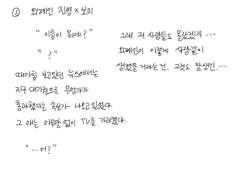 ① 외계인 진영 × 보미
" 이름이 뭐야? "
" ? "
때마침 보고있던 뉴스에서는
지구 대기권으로 무언가가
통과했다는 속보가 나오고 있었다.
그 애는 아무말 없이 TV를 가리켰다.
" ... 어? "
그래 저 사람들도 몰랐겠지...
외계인이 이렇게 사람같이
생겼을 거라는 건. 그것도 잘생긴...